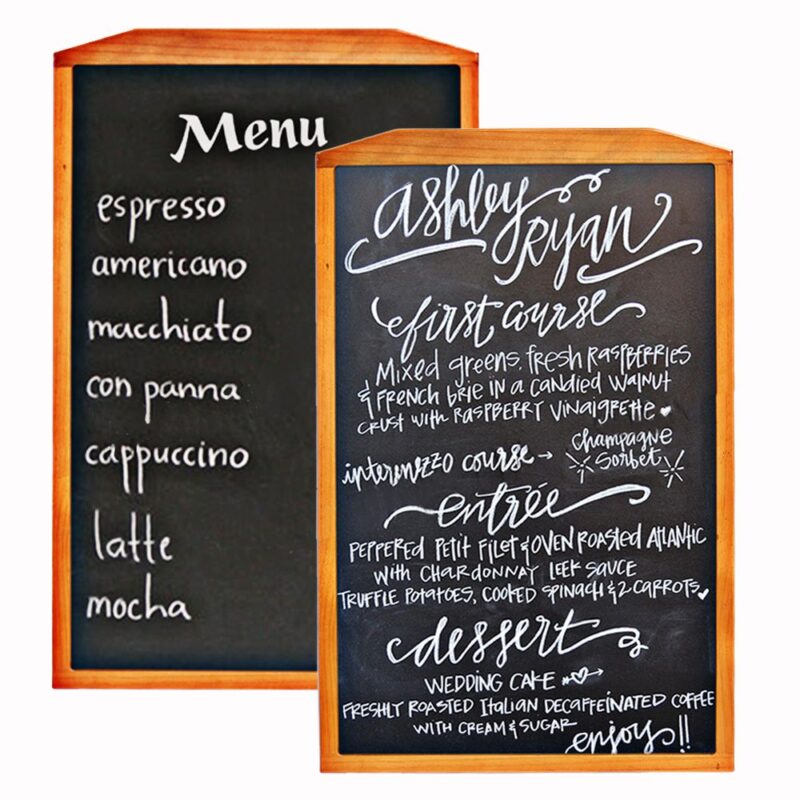 Menu
espresso
americano
macchiato
con panna
cappuccino
latte
mocha
ashley
Ryan
first course
Mixed greens, fresh Raspberries
& French brie in a candied walnut
crust with Raspberry Vinaigrette
intermezzo course → champagne
sorbet
entrée
Peppered Petit Filet & Oven Roasted Atlantic
with Chardonnay Leek Sauce
Truffle Potatoes, Cooked Spinach & 2 Carrots
dessert
Wedding Cake
Freshly Roasted Italian Decaffeinated Coffee
with Cream & Sugar
enjoy!!